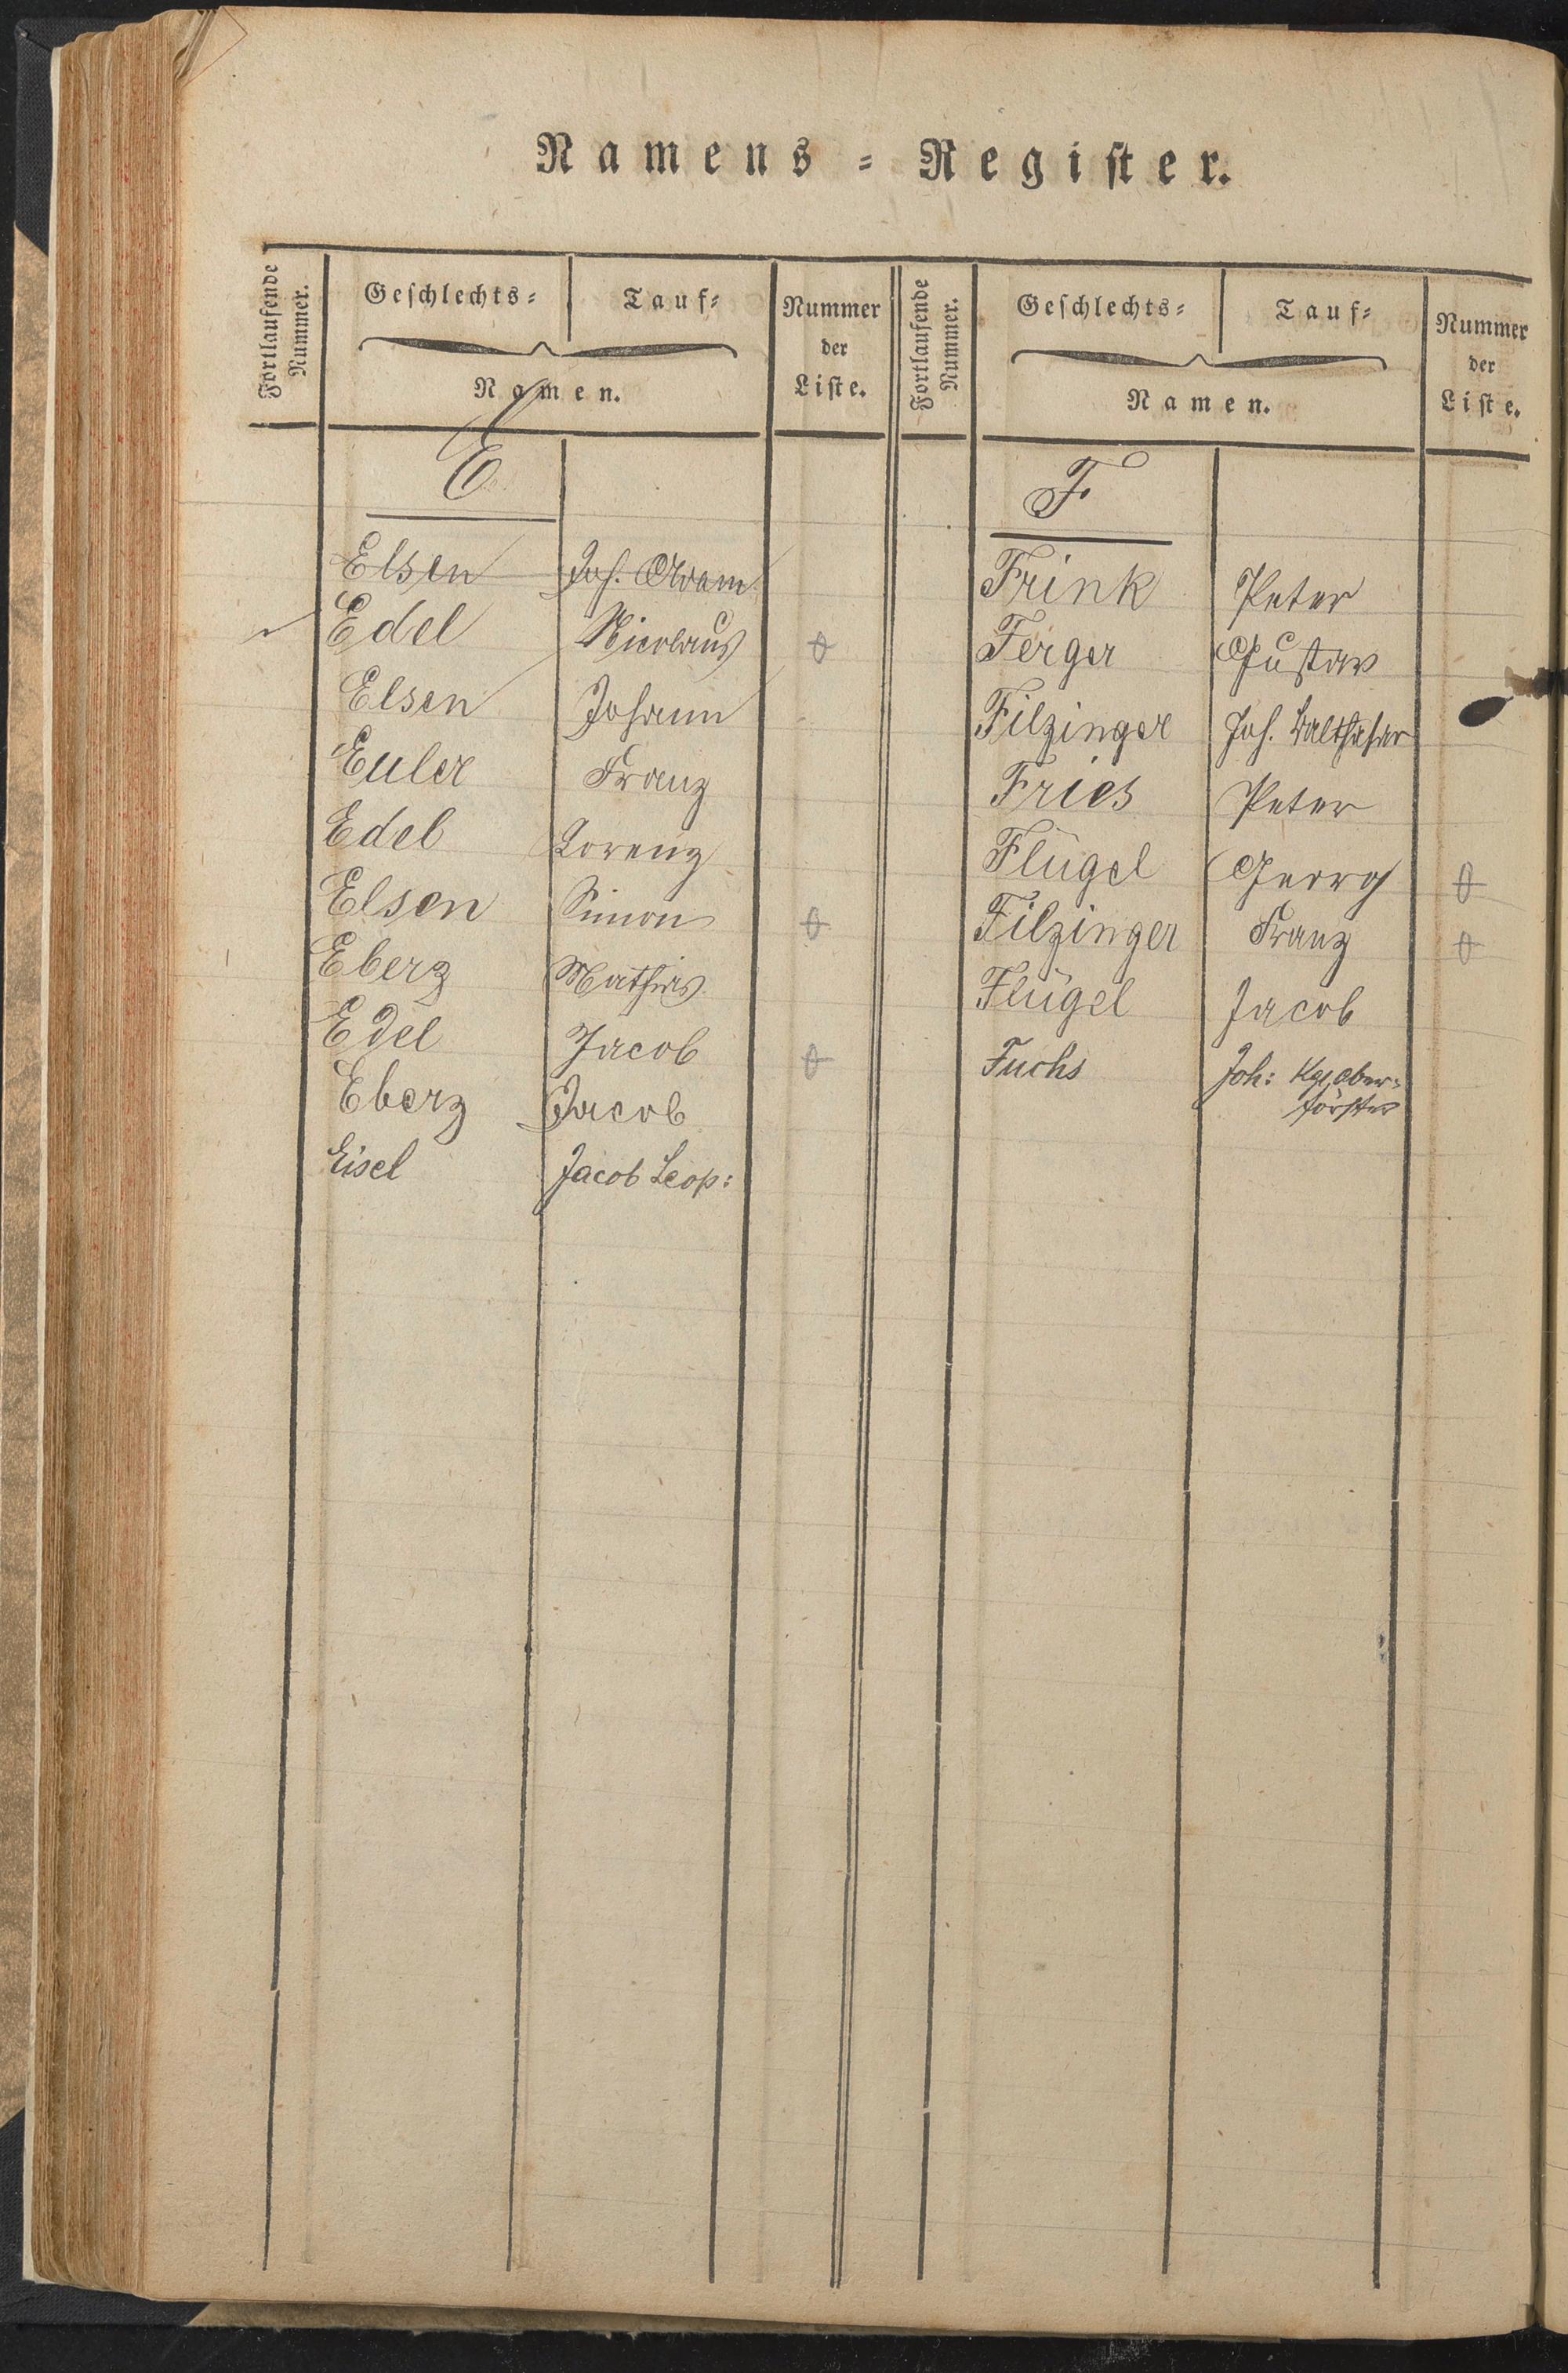 Namens-Register.
Fortlaufende Nummer.
Geschlechts-
Tauf-
Namen.
Nummer der Liste.
Fortlaufende Nummer.
Geschlechts-
Tauf-
Namen.
Nummer der Liste.
E
Elsen Joh. Adam
Edel Nicolaus
Elsen Johann
Euler Franz
Edel Lorenz
Elsen Simon
Eberz Mathias
Edel Jacob
Eberz Jacob
Eisel Jacob Leop:
F
Frink Peter
Ferger Gustav
Filzinger Joh. Balthasar
Fries Peter
Flügel Georg
Filzinger Franz
Flügel Jacob
Fuchs Joh: Kgl Ober-
förster